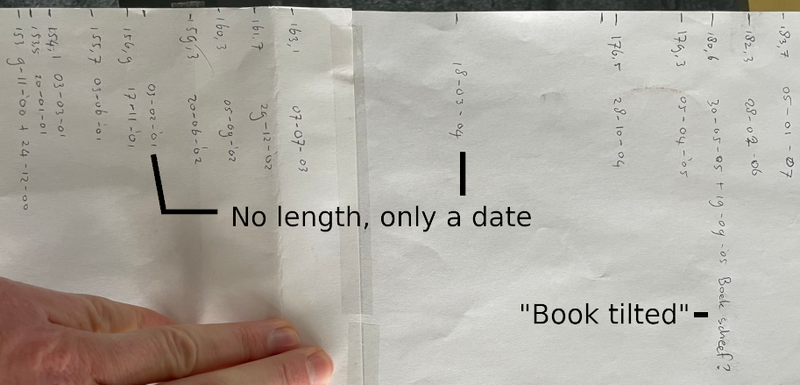 183,7 05-01-07
182,3 28-07-06
180,6 30-05-05 + 19-09-05 Boek scheef?
179,3 05-04-'05
176,5 28-10-04
18-03-04
163,1 07-07-03
161,7 29-12-'02
160,3 05-09-'02
159,3 20-06-'02
03-02-'01
156,9 17-11-'01
155,7 03-06-'01
154,1 03-03-01
153,5 20-01-01
153 9-11-'00 + 24-12-00
No length, only a date
"Book tilted"